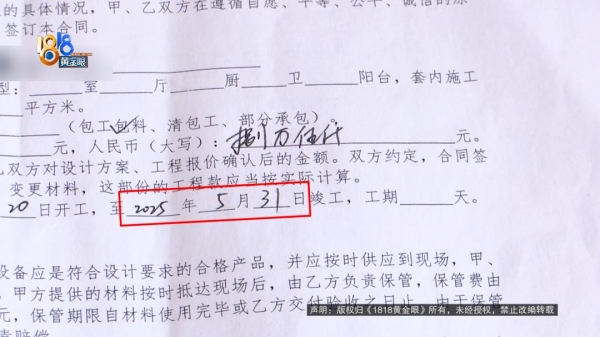 的具体情况，甲、乙双方在遵循自愿、平等、公平、诚信的原
签订本合同。
1818
黄金眼
型：室厅厨卫阳台，套内施工
平方米。
（包工包料、清包工、部分承包）。
元，人民币（大写）：捌万伍仟元。
乙双方对设计方案、工程报价确认后的金额。双方约定，合同签
变更材料，这部份的工程款应当按实际计算。
20日开工，至2025年5月31日竣工，工期天。
设备应是符合设计要求的合格产品，并应按时供应到现场，甲、
，甲方提供的材料按时抵达现场后，由乙方负责保管，保管费由
元，保管期限自材料使用完毕或乙方交付验收之日止，由于保管
责赔偿。
声明：版权归《1818黄金眼》所有，未经授权，禁止改编转载